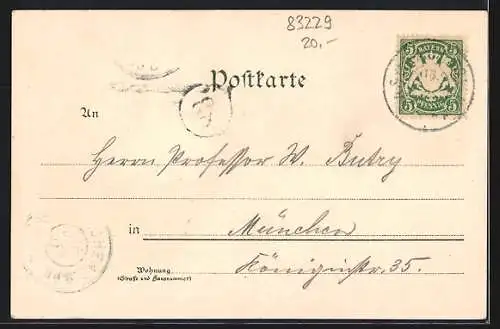 83229
20,-
Postkarte
BAYERN
5 5
5 PFENNIG 5
An
Herrn Professor W.
in München
Wohnung
(Straße und Hausnummer)
Königinstr. 35.